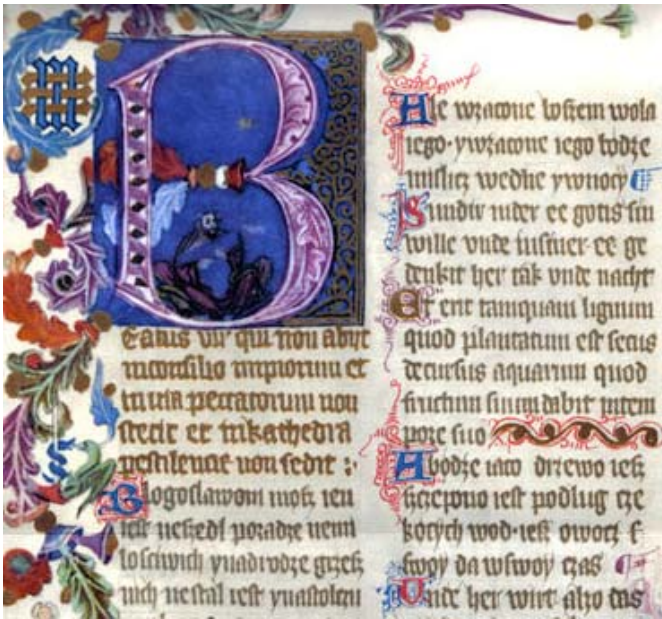 Beatus vir qui non abijt
in consilio impiorum et
in via peccatorum non
stetit et in kathedra
pestilencie non sedit :
Blogoslawoni møsz ien
iest ne szedl po radze nemi
losciwich y na drodze grzesz
nich ne stal iest y na stolczu
Ale w zacone boszem wola
iego · y w zacone iego bødze
mislicz we dne y w noczy
Sundir in der ee gotis sin
wille vnde in siner ee ge
denkit her tak vnde nacht
Et erit tamquam lignum
quod plantatum est secus
decursus aquarum quod
fructum suum dabit in tem
pore suo
A bødze iaco drzewo iesz
szczepono iest podlug cze
køcych wod · iesz owocz s
swoy da w swoy czas
Vnde her wirt alzo das